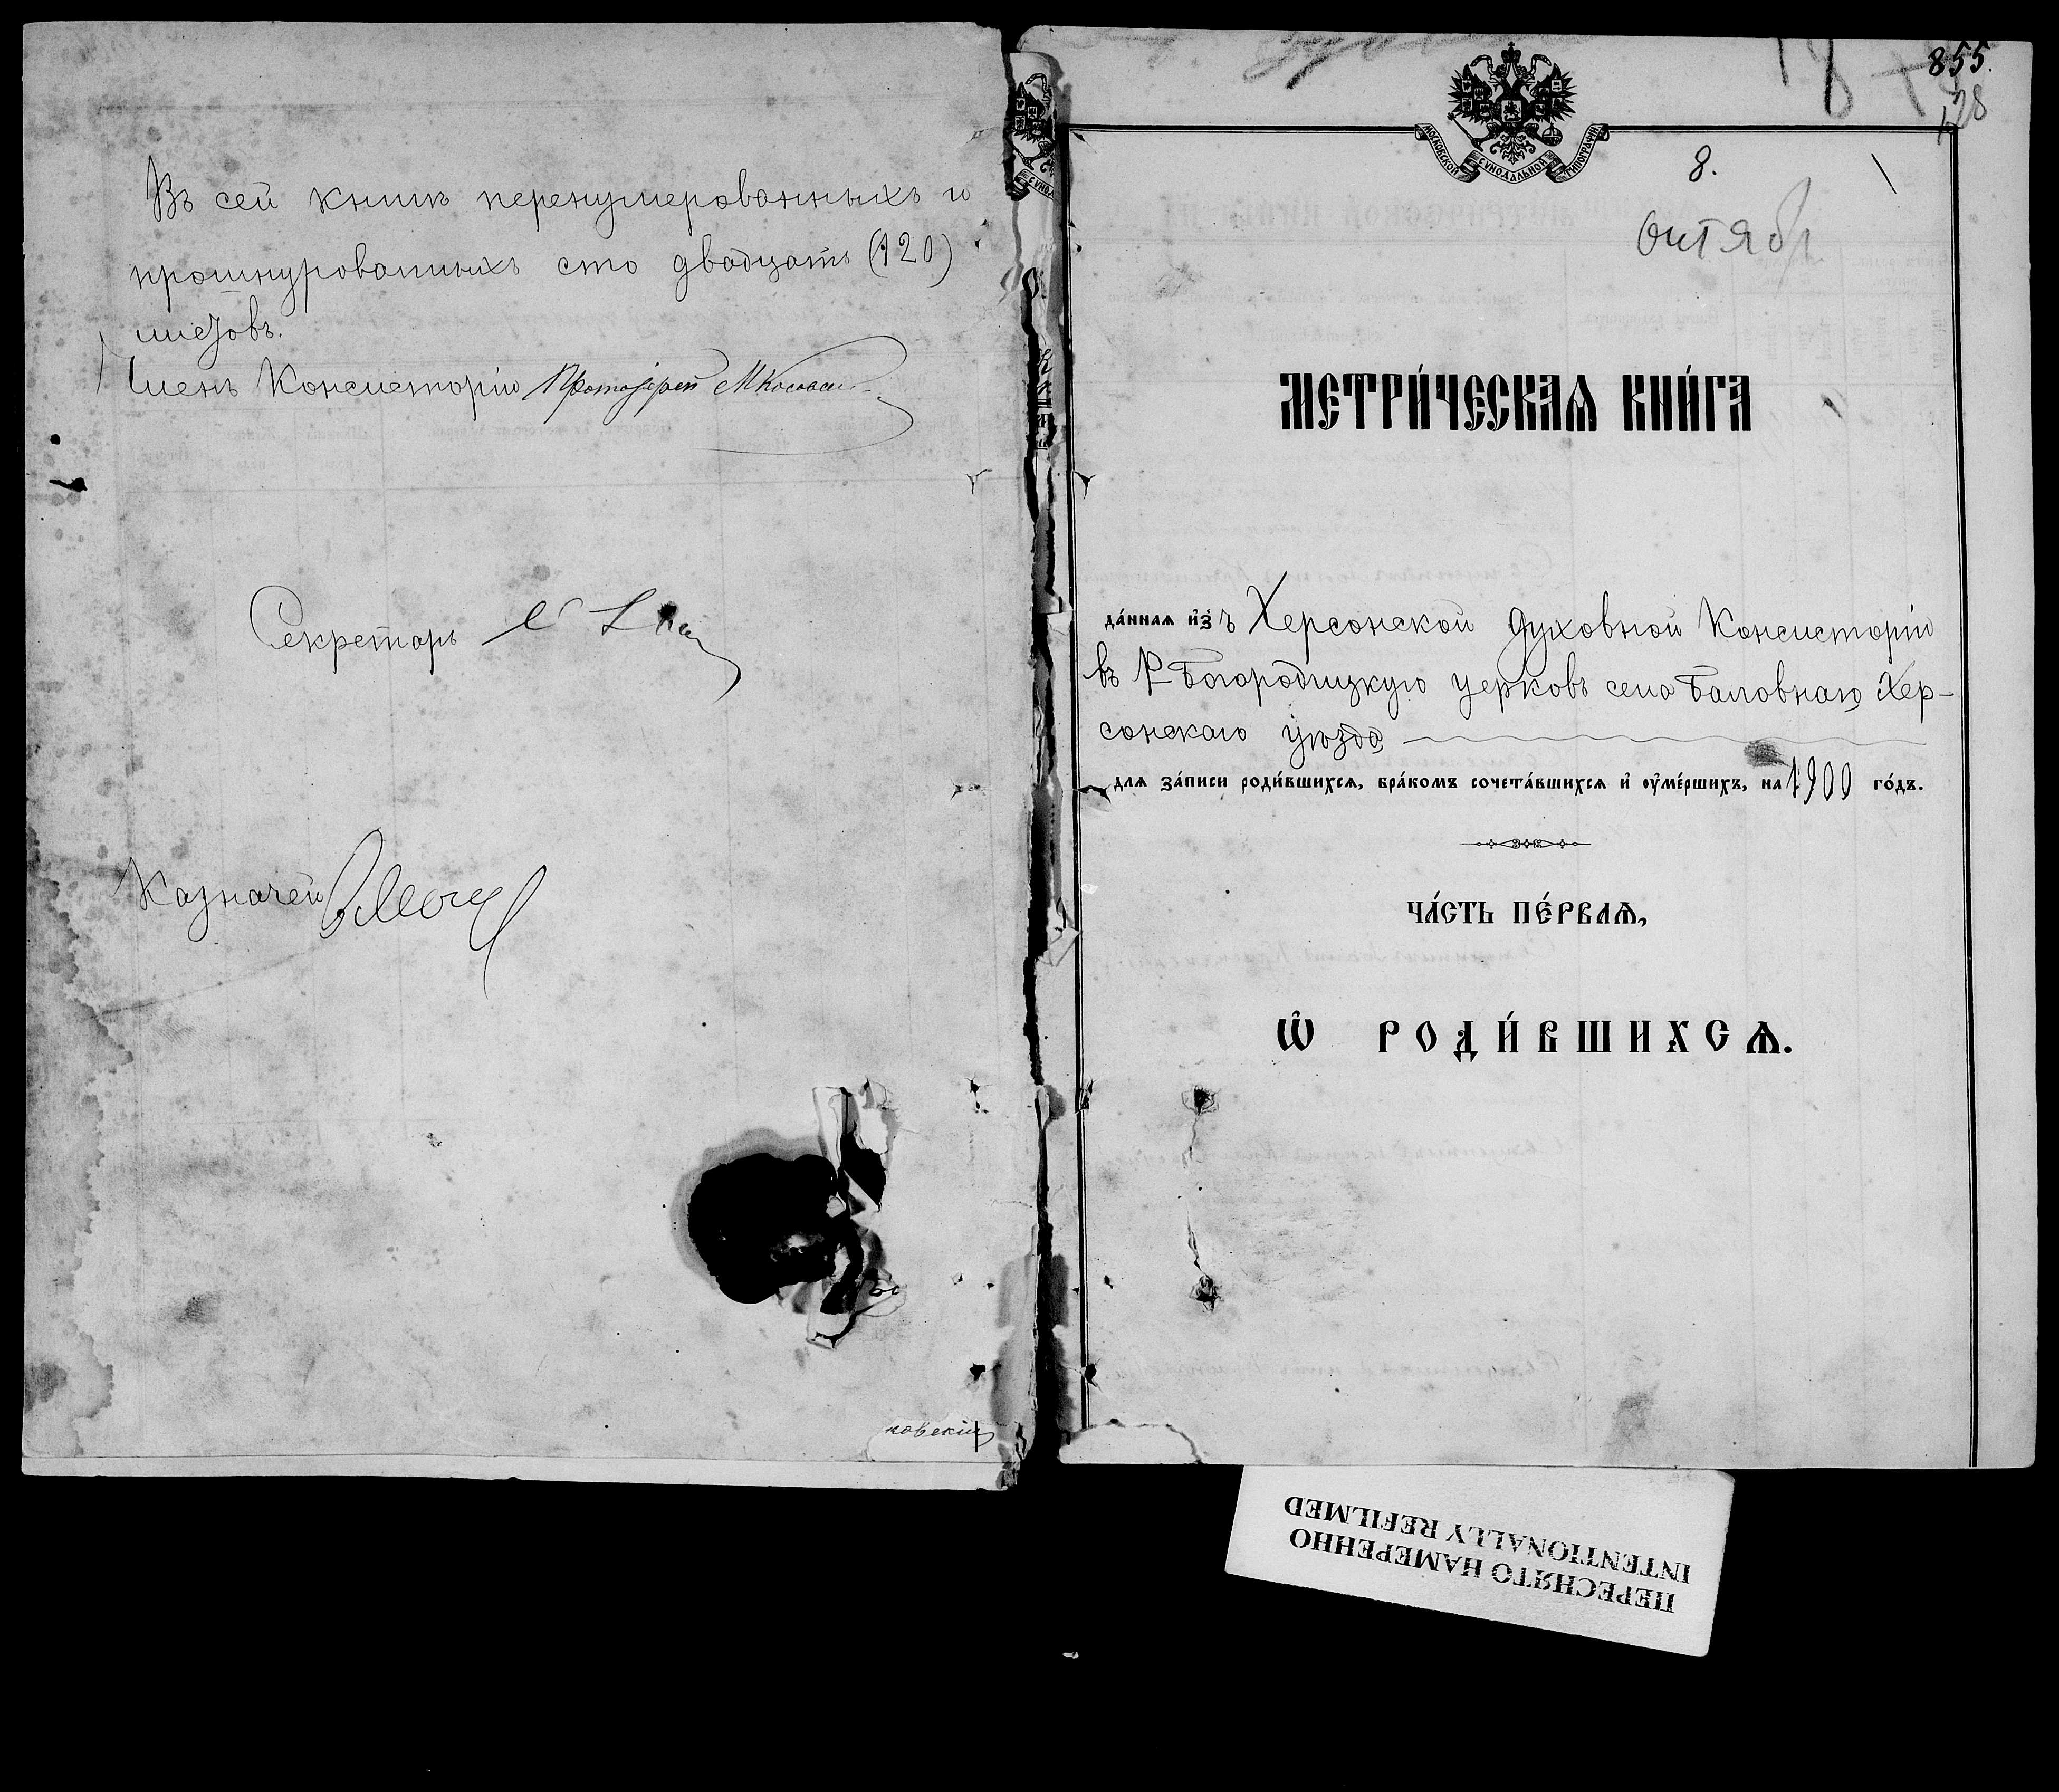 Въ сей книгѣ перенумерованныхъ и
прошнурованныхъ сто двадцать (120)
листовъ.
Членъ Консисторіи Протоіерей
Секретарь
Казначей
ковскій
855.
128
МОСКОВСКОЙ СѴНОДАЛЬНОЙ ТИПОГРАФІИ
8.
Октябр
МЕТРИ́ЧЕСКАѦ КНИ́ГА
да́нная из̾ ъ Херсонской Духовной Консисторіи
въ Р Богородицкую церковь села Баловнаго Хер-
сонскаго уѣзда
для за́писи роди́вшихся, бра́комъ сочета́вшихся и҆ ᲂу҆ме́ршихъ, на 1900 го́дъ.
ЧА́СТЬ ПЕ́РВАѦ,
Ѽ РОДИ́ВШИХСѦ.
ПЕРЕСНЯТО НАМЕРЕННО
INTENTIONALLY REFILMED